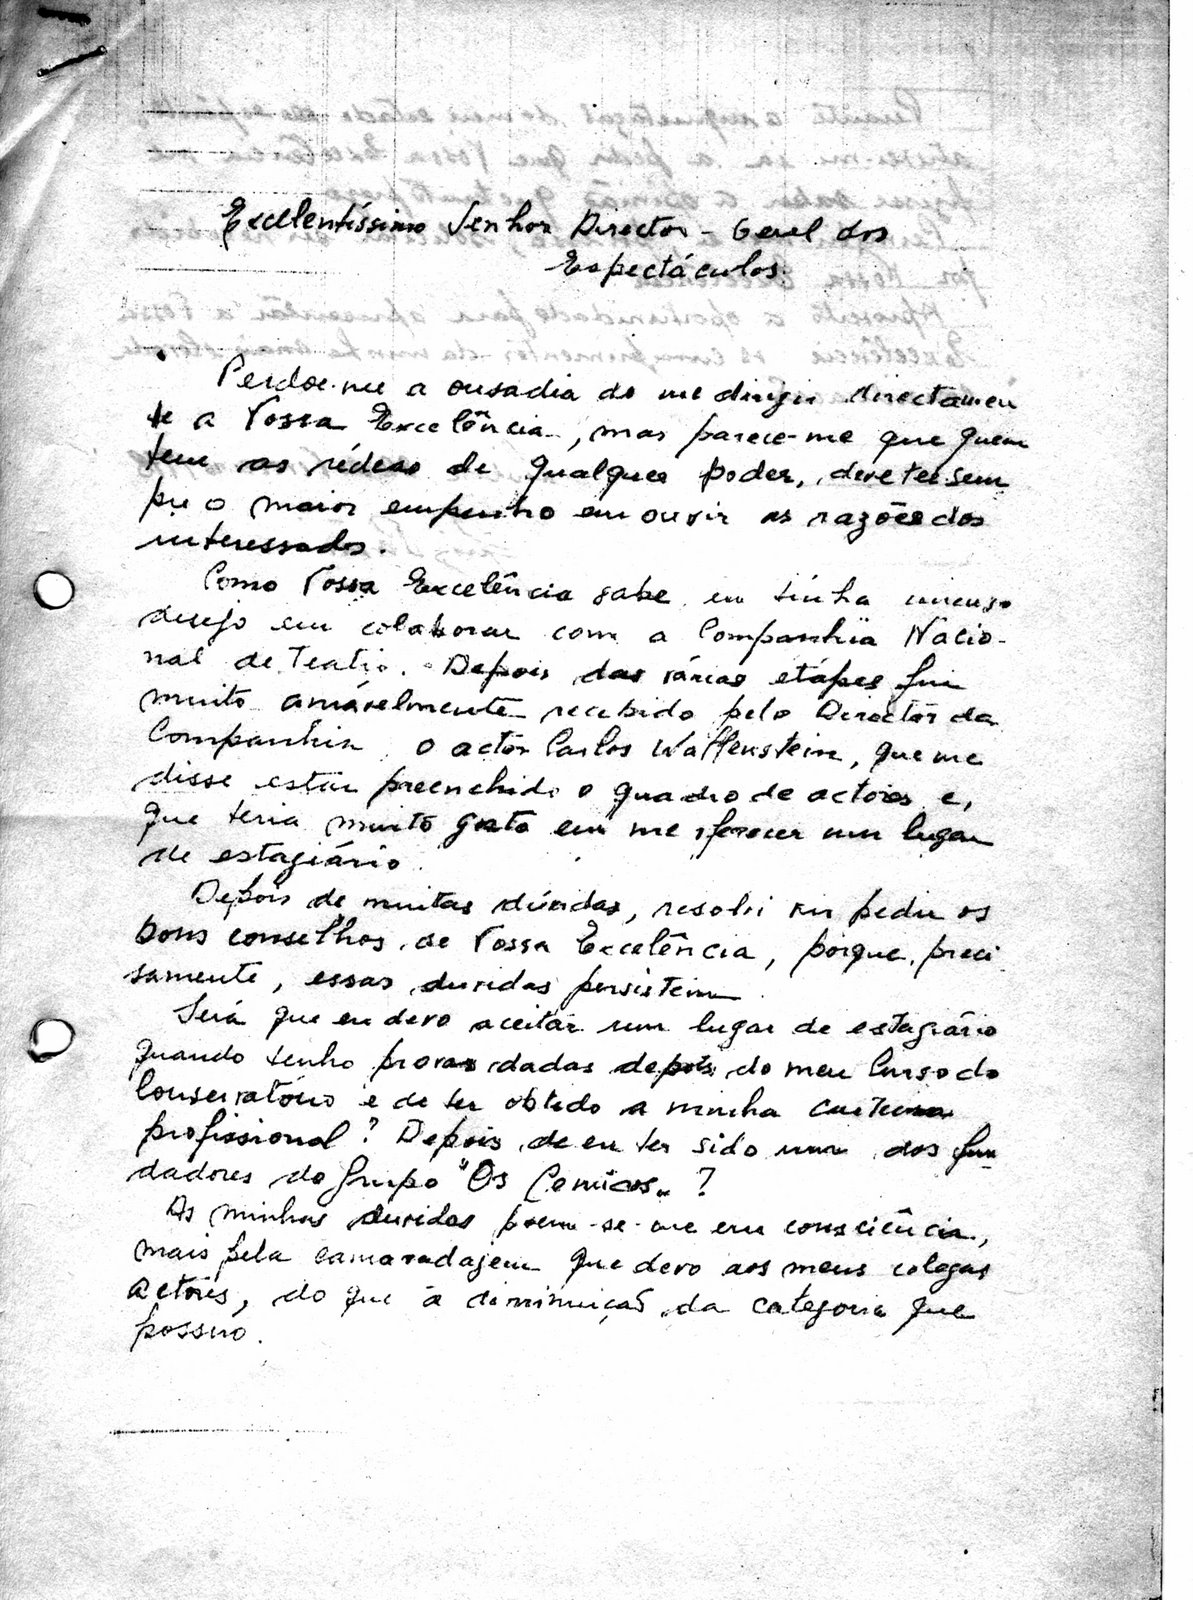 Excelentíssimo Senhor Director-Geral dos
Espectáculos.
Perdoe-me a ousadia de me dirigir directamen
te a Vossa Excelência, mas parece-me que quem
tem as rédeas de qualquer poder, deve ter sem
pre o maior empenho em ouvir as razões dos
interessados.
Como Vossa Excelência sabe eu tinha imenso
desejo em colaborar com a Companhia Nacio-
nal de Teatro. Depois das várias etápes fui
muito amávelmente recebido pelo Director da
Companhia o actor Carlos Wallenstein, que me
disse estar preenchido o quadro de actores e,
que teria muito gosto em me oferecer um lugar
de estagiário.
Depois de muitas dúvidas, resolvi vir pedir os
bons conselhos de Vossa Excelência, porque, preci
samente, essas duvidas persistem.
Será que eu devo aceitar um lugar de estagiário
quando tenho provas dadas depois do meu Curso do
Conservatório e de ter obtido a minha carteira
profissional? Depois de eu ter sido um dos fun
dadores do Grupo "Os Cómicos"?
As minhas duvidas poem-se-me em consciência,
mais pela camaradagem que devo aos meus colegas
actores, do que à diminuição da categoria que
possuo.